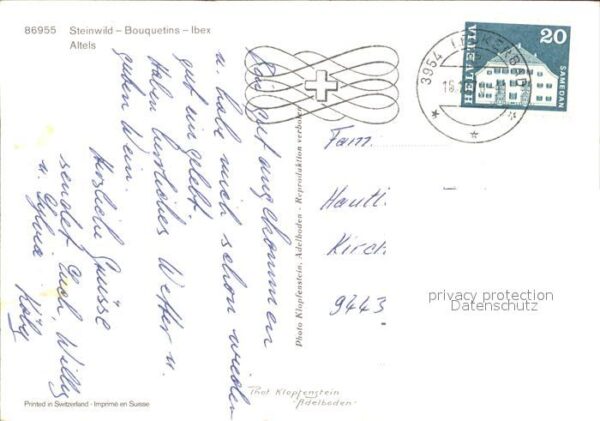 86955 Steinwild – Bouquetins – Ibex
Altels
HELVETIA
20
SAMEDAN
3954 LEUKERBAD
Bin gut angekommen
u. habe mich schon wieder
gut eingelebt.
Haben herrliches Wetter u.
guten Wein.
Herzliche Grüsse
sendet Euch Willy
u. Sylvia
Photo Klopfenstein, Adelboden - Reproduktion verboten
Fam.
Hautl
Kirch
9443
privacy protection
Datenschutz
Phot Klopfenstein
Adelboden
Printed in Switzerland - Imprimé en Suisse